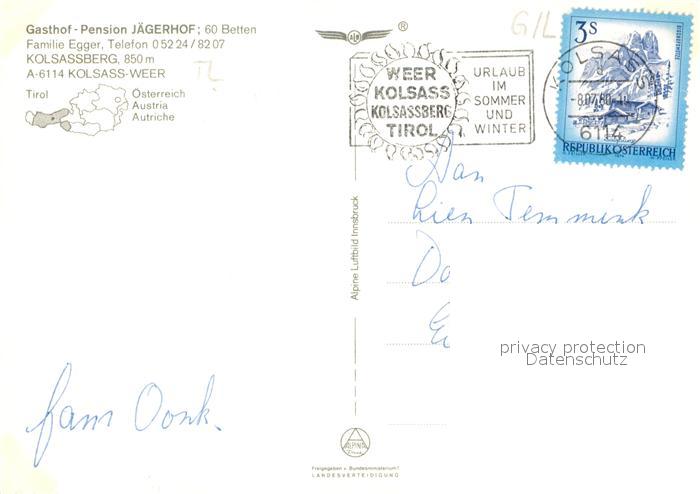 Gasthof - Pension JÄGERHOF; 60 Betten
Familie Egger, Telefon 0 52 24 / 82 07
KOLSASSBERG, 850 m
A-6114 KOLSASS-WEER
Tirol
Österreich
Austria
Autriche
TL
®
G/L
WEER
KOLSASS
KOLSASSBERG
TIROL
URLAUB
IM
SOMMER
UND
WINTER
3S
KOLSASS
6114
REPUBLIK ÖSTERREICH
Alpine Luftbild Innsbruck
Aan
Lien Temmink
Do
privacy protection
Datenschutz
fam Oonk.
ALPINE
Freigegeben v. Bundesministerium f.
LANDESVERTEIDIGUNG